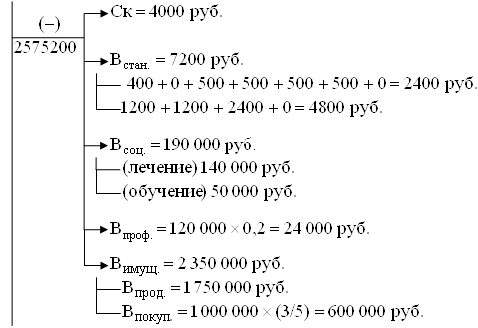 (−)
2575200
Ск = 4000 руб.
Встан. = 7200 руб.
400 + 0 + 500 + 500 + 500 + 500 + 0 = 2400 руб.
1200 + 1200 + 2400 + 0 = 4800 руб.
Всоц. = 190 000 руб.
(лечение) 140 000 руб.
(обучение) 50 000 руб.
Впроф. = 120 000 × 0,2 = 24 000 руб.
Вимущ. = 2 350 000 руб.
Впрод. = 1 750 000 руб.
Впокуп. = 1 000 000 × (3/5) = 600 000 руб.